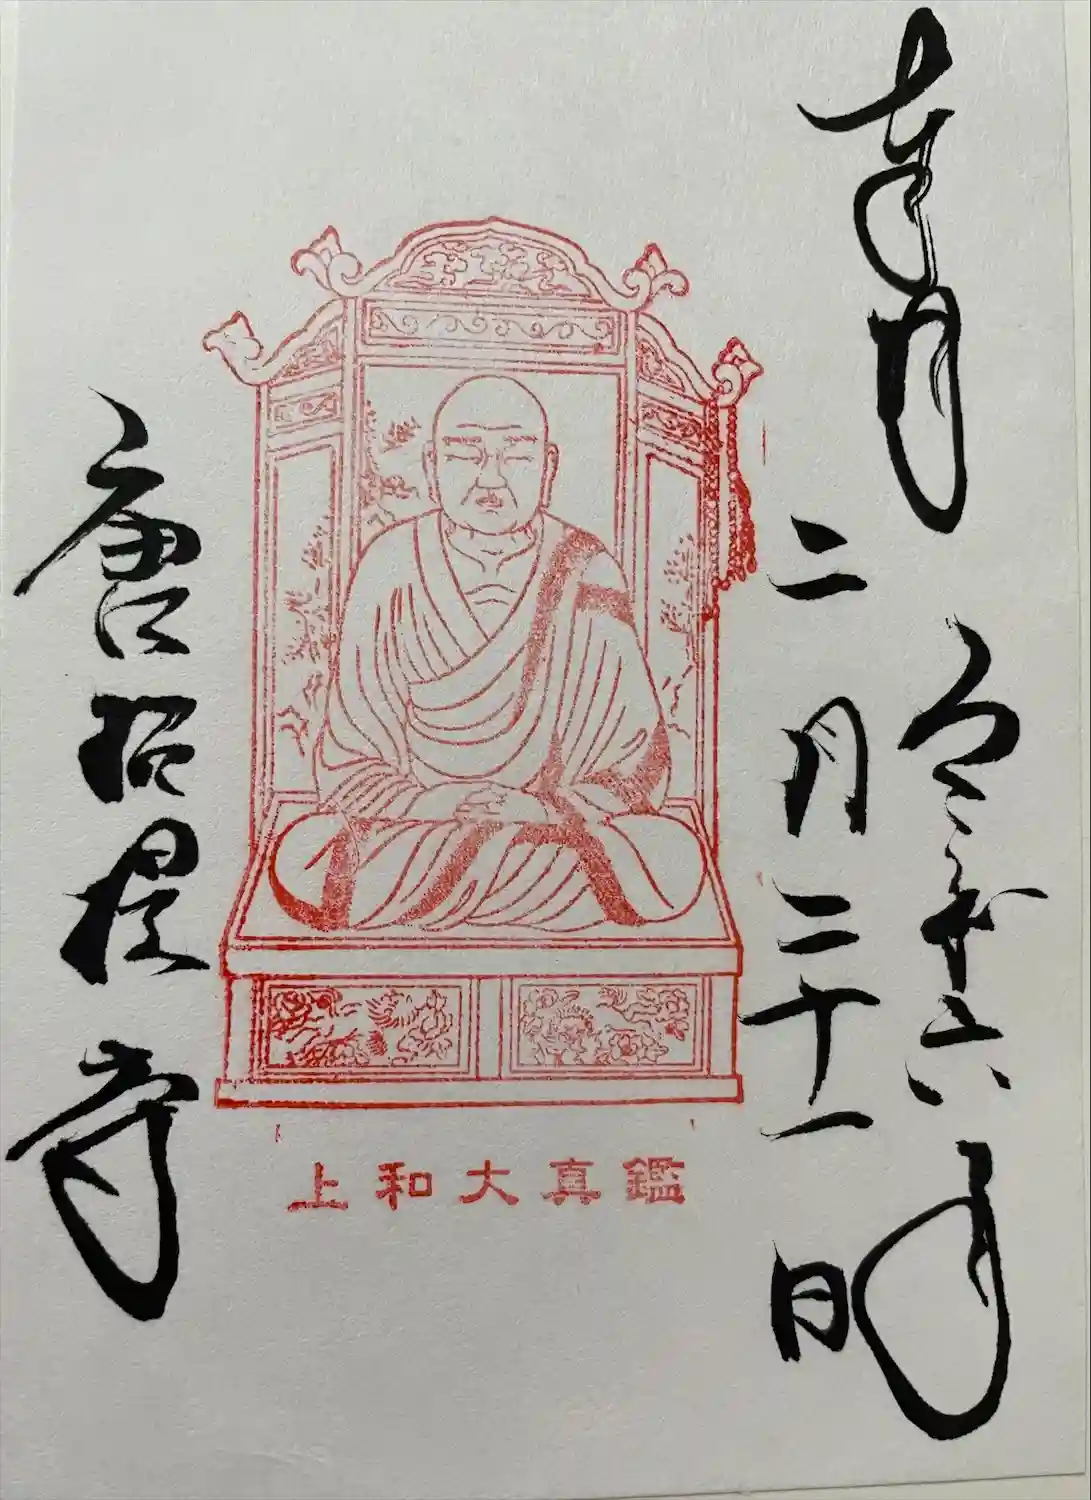 奉拝
令和六年
二月二十一日
鑑真大和上
唐招提寺